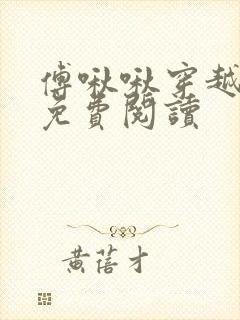 傅啾啾穿越
免費閱讀
黃蓓才